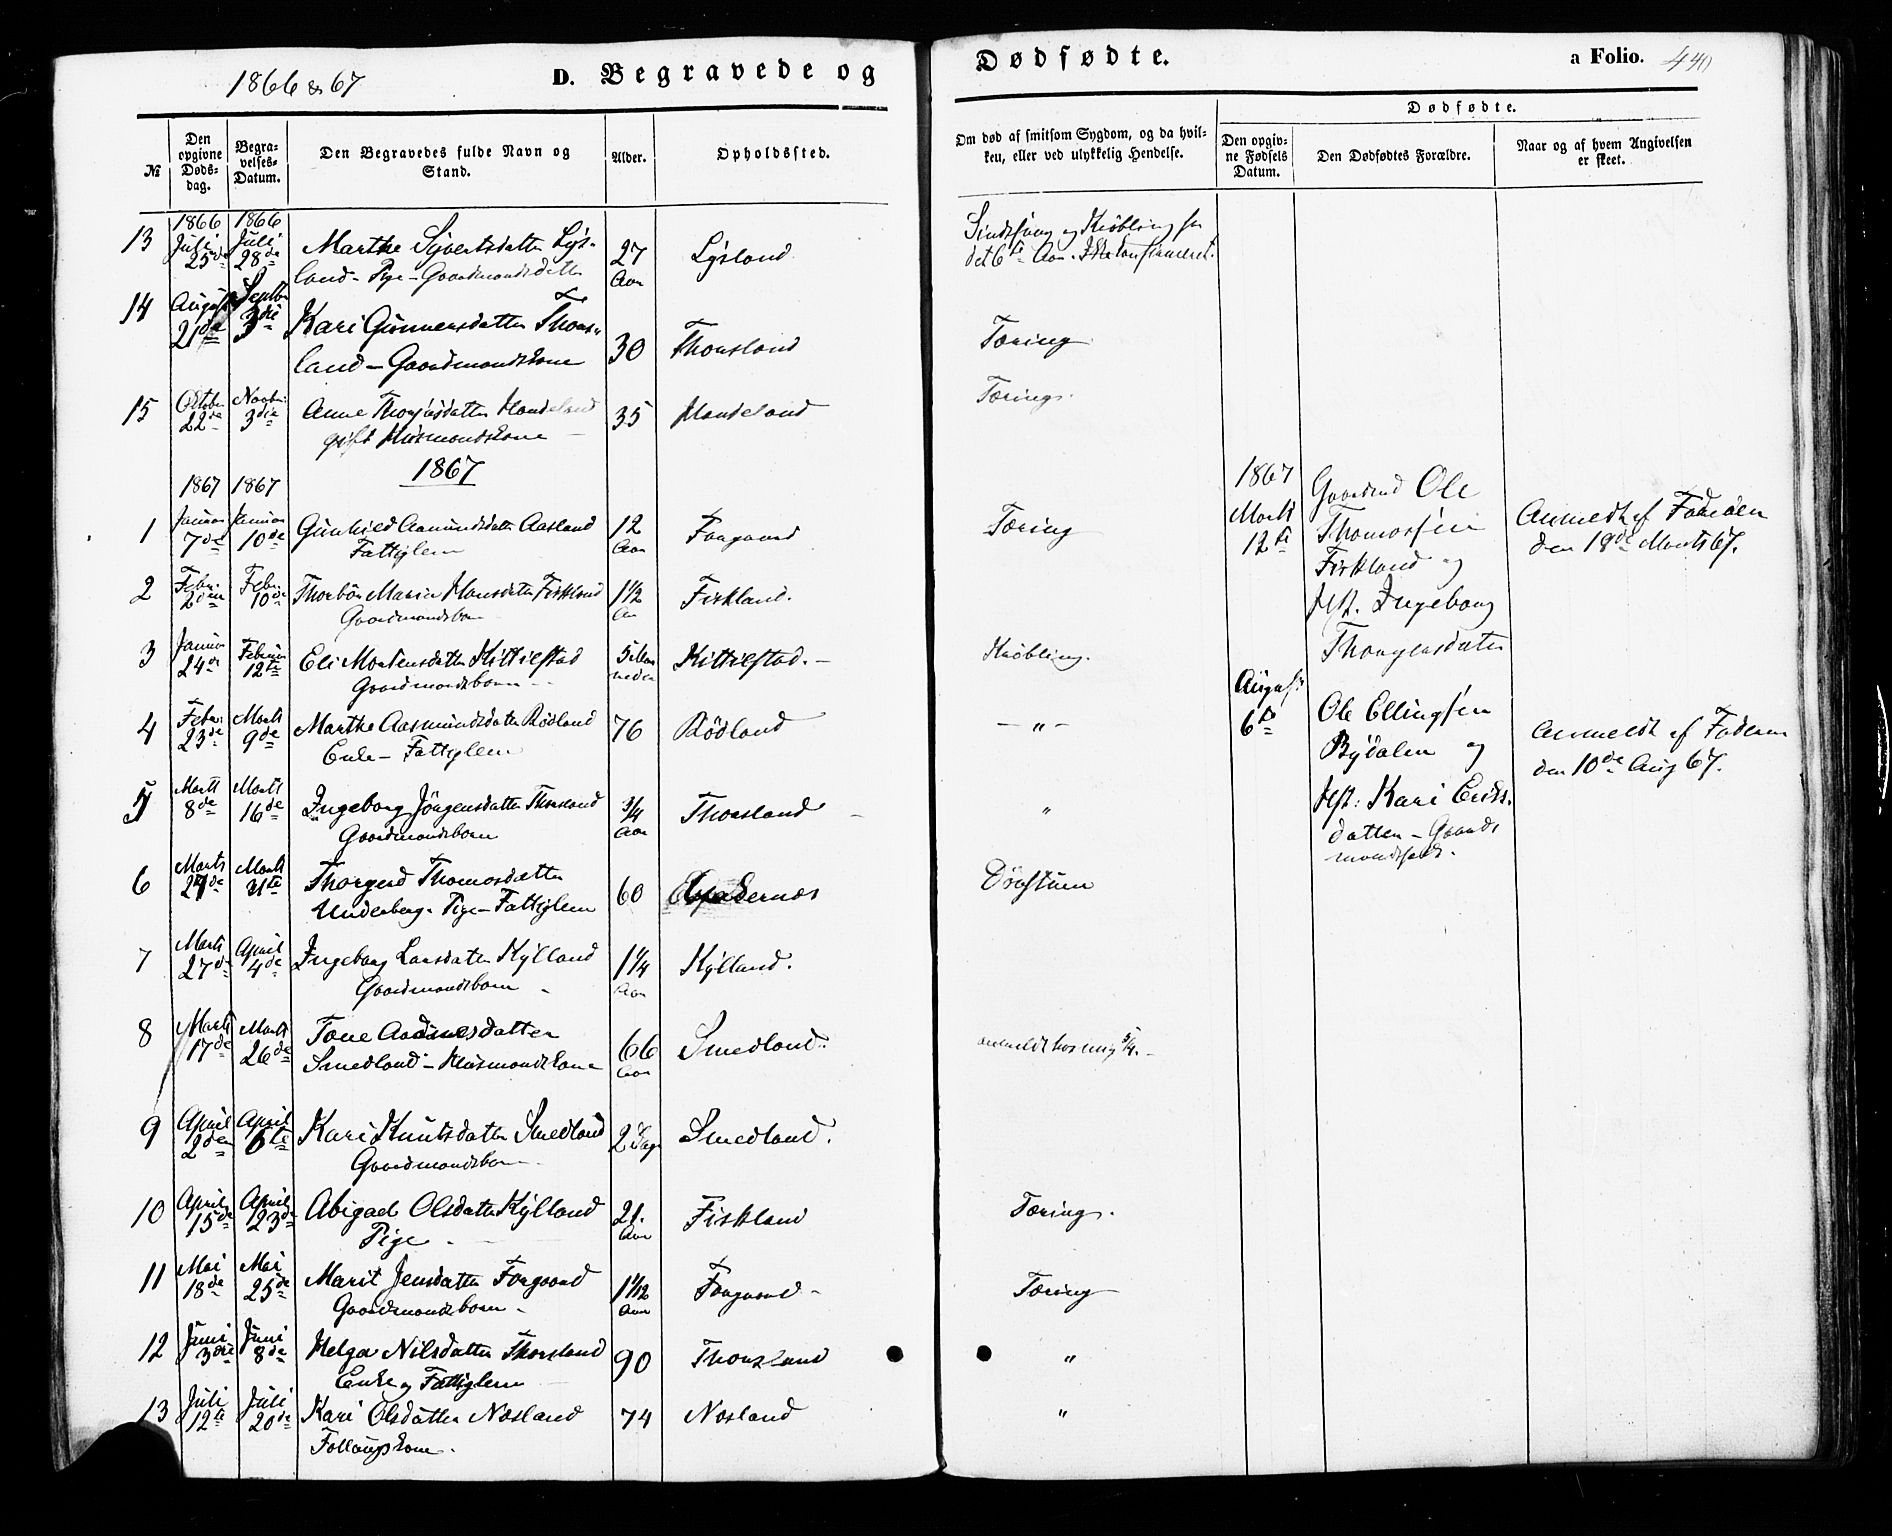 1866 & 67
D. Begravede og
Dødfødte.
a Folio. 440
№
Den opgivne Døds-dag.
Begra-velses-Datum.
Den Begravedes fulde Navn og Stand.
Alder.
Opholdssted.
Om død af smitsom Sygdom, og da hvil-
ken, eller ved ulykkelig Hendelse.
Dødfødte.
Den opgiv-ne Fødsels Datum.
Den Dødfødtes Forældre.
Naar og af hvem Angivelsen er skeet.
1866 1866
13 Juli 25de Juli 28de Marthe Sivertsdatter Lys- 27 Lysland
land - Pige - Gaardmandsdatter Aar
det 6te Aar. Ikke konfirmeret.
14 August 21de Septbr 3die Kari Gunnersdatter Thors- 30 Thorsland Tæring
land - Gaardmandskone
15 Octobr 22de Novbr 3die Anne 35 Tæring.
gift Husmandskone
1867
1867 1867
1 Januar 7de Januar 10de Gunhild Aamundsdatter Aasland 12 Forgaard Tæring
Fattiglem Aar
2 Febr. 2den Febr. 10de Thorbør Marie Hansdatter Fiskland 1½ Fiskland.
Gaardmandsbarn Aar
3 Januar 24de Februar 12te Eli Mortensdatter Kittilstad 5 Maa- Kittilstad. - Kvøbling.
Gaardmandsbarn neder
4 Febr. 23de Marts 9de Marthe Aasmundsdatter Rødland 76 Rødland - " -
Enke - Fattiglem
5 Marts 8de Marts 16de Ingeborg Jörgensdatter Thorsland 3/4 Thorsland "
Gaardmandsbarn Aar
6 Marts Marts 31te Thorgerd Thomasdatter 60
Underberg. Pige - Fattiglem
7 Marts 27de April 4de Ingeborg Larsdatter Kylland 1¼ Kylland.
Gaardmandsbarn Aar
8 Marts 17de Marts 26de Tone Aadnesdatter 66 Smedland. anmeldt hos mig 5/4. -
Smedland - Husmandskone Aar
9 April 2den April 6te Kari Knutsdatter Smedland 2 Dage Smedland.
Gaardmandsbarn
10 April 15de April 23de Abigael Olsdatter Kylland 21. Fiskland Tæring.
Pige Aar
11 Mai 18de Mai 25de Marit Jensdatter Forgaard 1 1/12 Forgaard - Tæring
Gaardmandsbarn Aar
12 Juni 3die Juni 8de Helga Nilsdatter Thorsland 90 Thorsland "
Enke og Fattiglem
13 Juli 12te Juli 20de Kari Olsdatter Nosland 74 Nosland "
1867
Marts 12te
Gaardmd Ole
Thomassen
Fiskland og
Hst. Ingeborg
Thorgersdatter
Anmeldt af Faderen
den 18de Marts 67.
August 6te
Ole Ellingsen
Rydalen og
Hst: Kari Eriks-
datter - Gaard-
mandsfolk.
Anmeldt af Faderen
den 10de Aug 67.